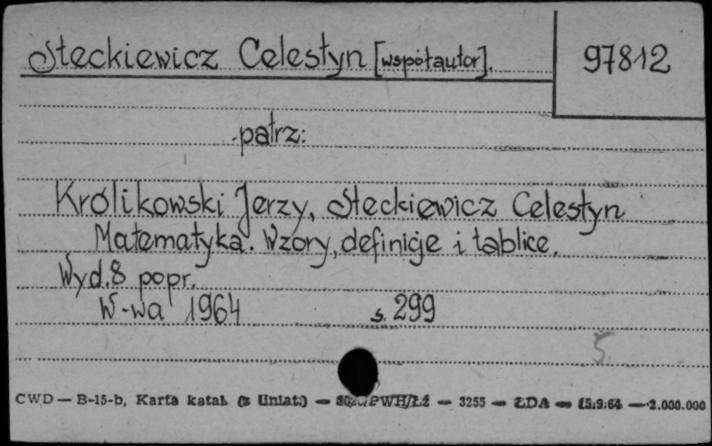 Steckiewicz Celestyn [współautor]. 97812
patrz:
Królikowski Jerzy, Steckiewicz Celestyn
Matematyka. Wzory, definicje i tablice.
Wyd. 8 popr.
W-wa 1964 s. 299
5
CWD — B-15-b, Karta katal. (z Uniat.) — PWH/Łź — 3255 — ŁDA — 15.9.64 — 2.000.000